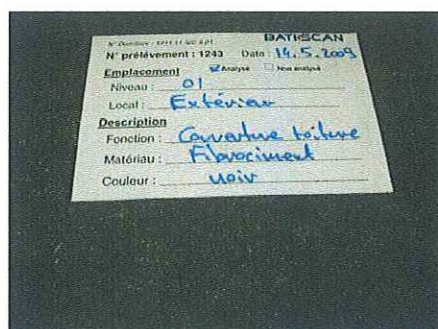 BATISCAN
N° prélèvement : 1243 Date : 14.5.2009
Emplacement Analysé Non analysé
Niveau : 01
Local : Extérieur
Description
Fonction : Couverture toiture
Matériau : Fibrociment
Couleur : noir